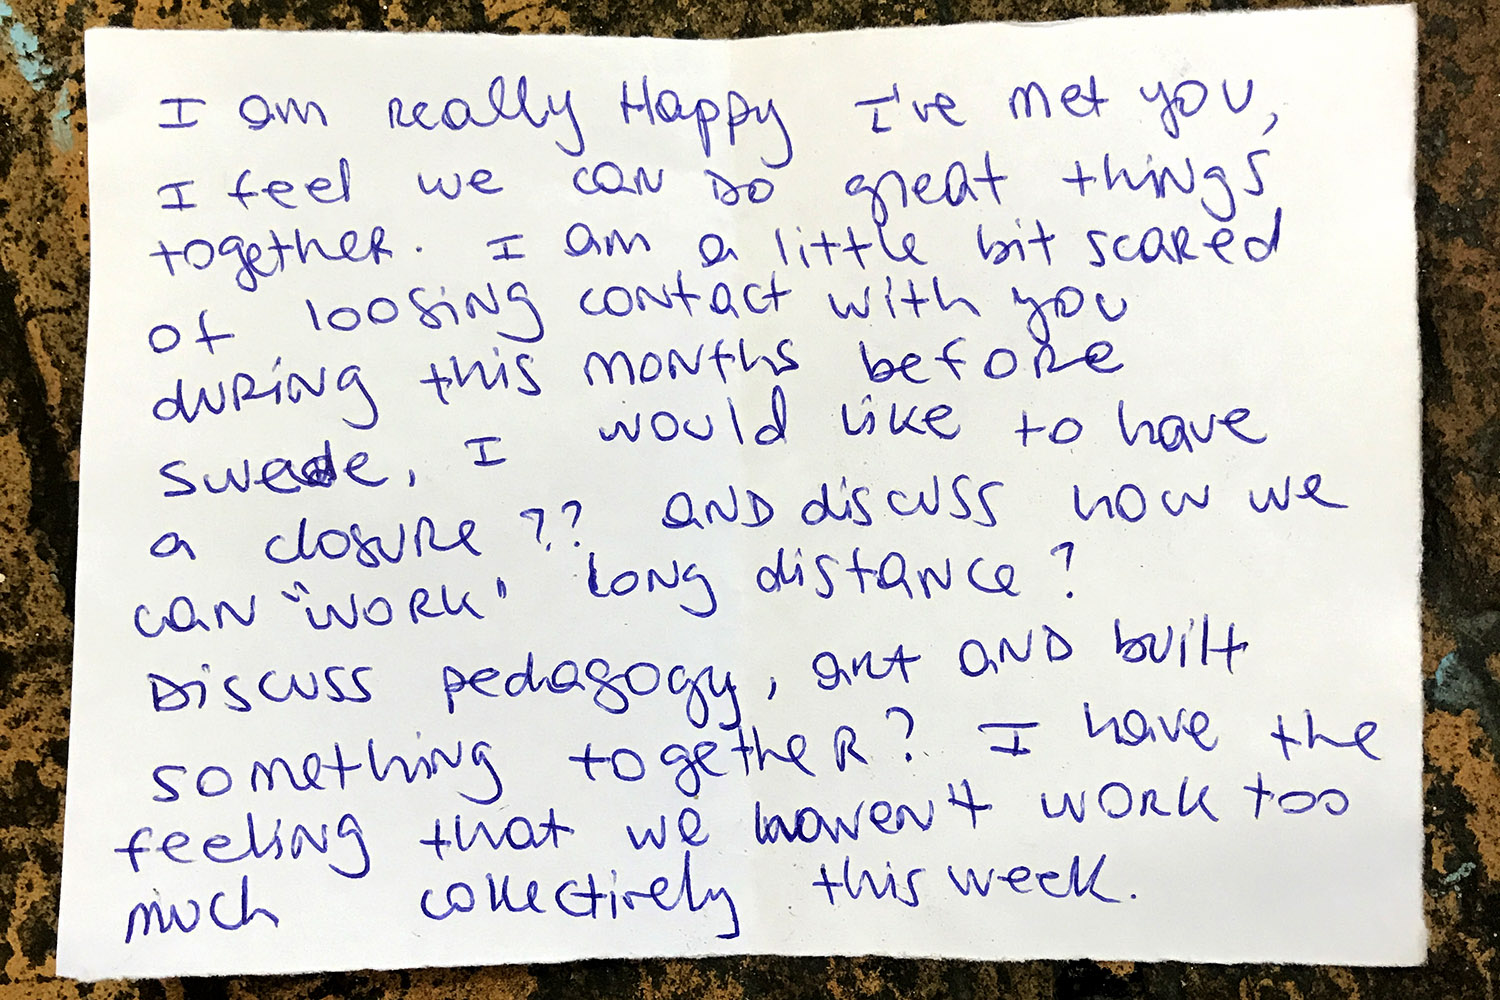 I am really Happy I've met you,
I feel we can DO great things
together. I am a little bit scared
of loosing contact with you
during this months before
swede, I would like to have
a closure?? AND discuss how we
can "work" long distance?
Discuss pedagogy, art AND built
something together? I have the
feeling that we haven't work too
much collectively this week.